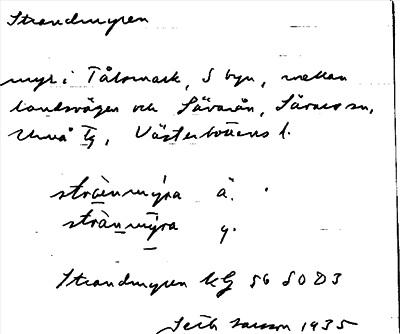 Strandmyren
myr i Tålsmark, S byn, mellan
landsvägen och Sävarån, Sävars sn,
Umeå tg, Västerbottens l.
strànmýra ä.
strànmýra y.
Strandmyren kg 56 SO D3
1935